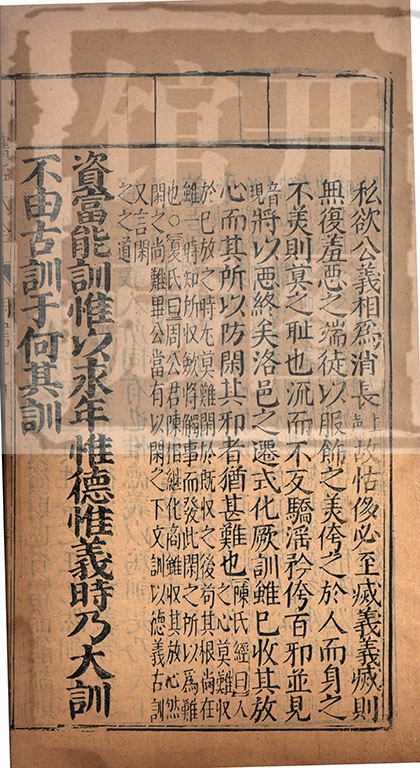 私欲公義相爲消長上聲故怙侈必至滅義義滅則
無復羞惡之端徒以服飾之美侉之於人而身之
不美則莫之恥也流而不反驕淫矜侉百邪並見
音現將以惡終矣洛邑之遷式化厥訓雖已收其放
心而其所以防閑其邪者猶甚難也陳氏經曰人之心莫難収
於已放之時尤莫難閑於既収之後苟其根尚在
雖一時知所収斂將觸事而發此閑之所以爲難
也○夏氏曰周公君陳相繼化商雖収其放心然
閑之尚難畢公當有以閑之下文訓以德義古訓
又言閑
之之道
資富能訓惟以永年惟德惟義時乃大訓
不由古訓于何其訓
馆开